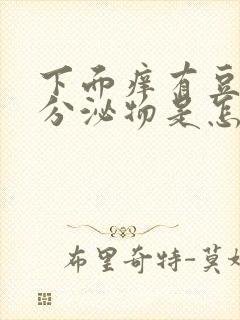 下面痒有豆
分泌物是怎
布里奇特-莫